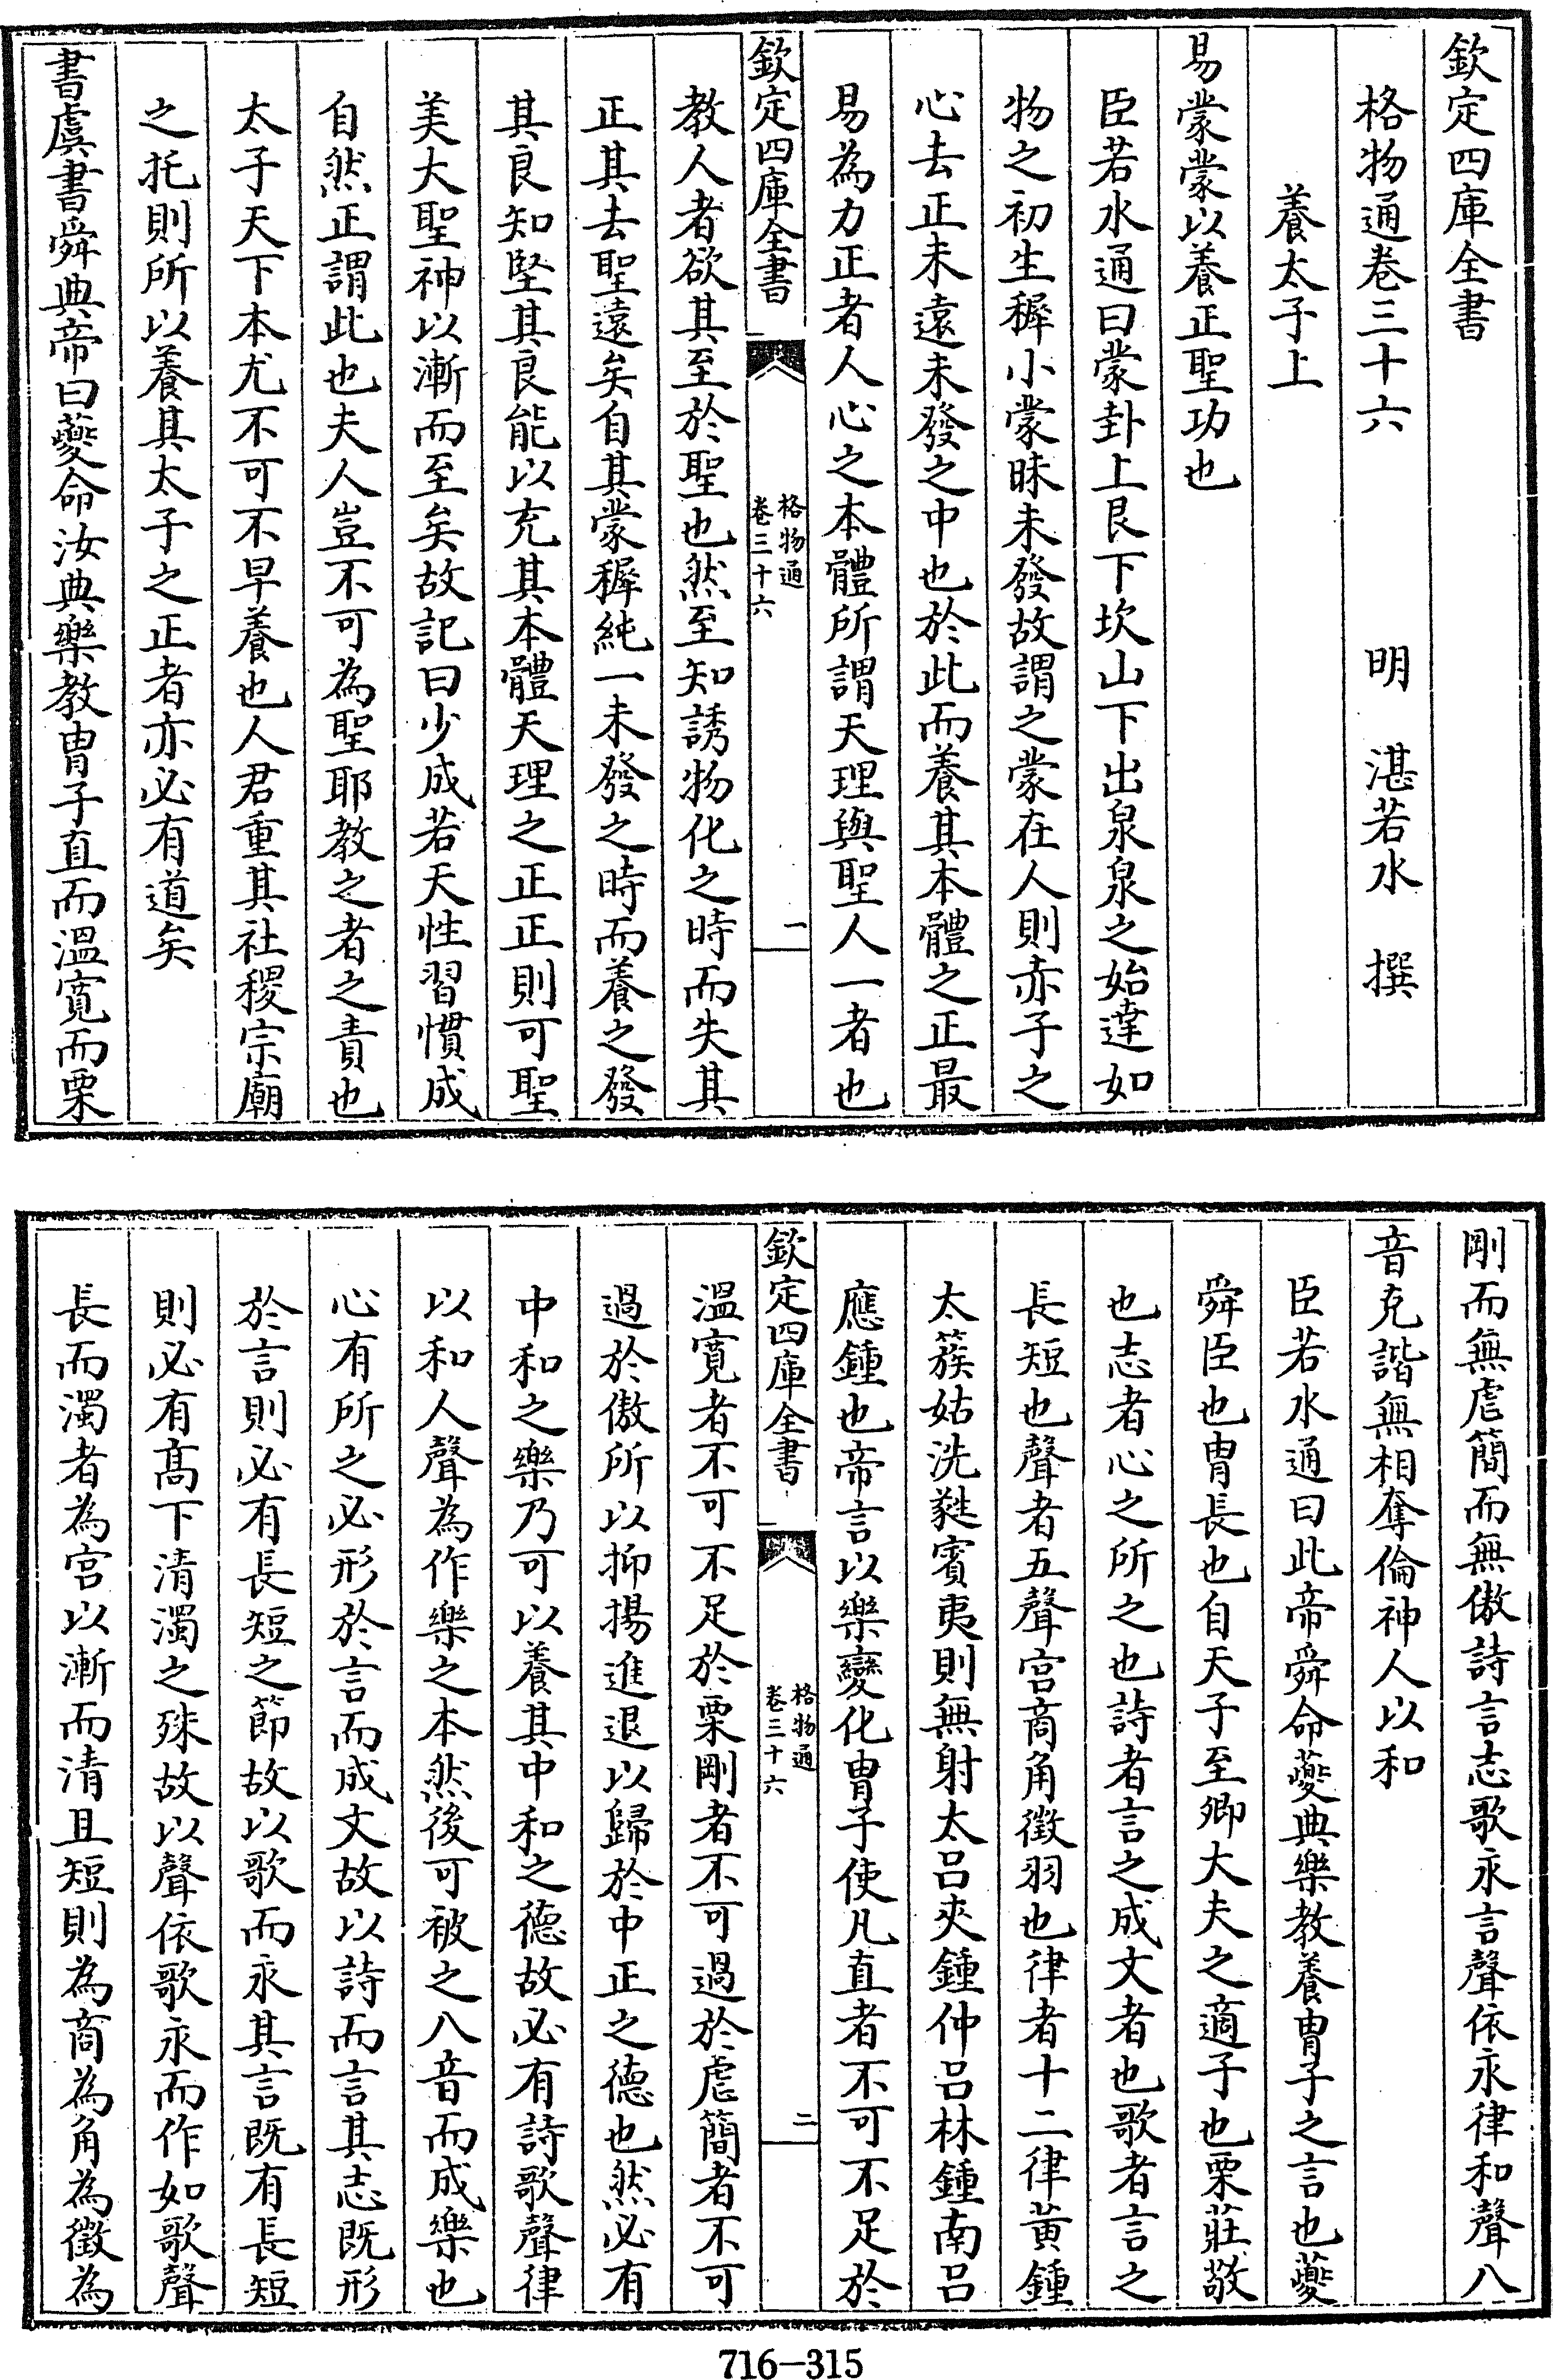 欽定四庫全書
格物通卷三十六
明 湛若水 撰
養太子上
易蒙蒙以養正聖功也
臣若水通曰蒙卦上艮下坎山下出泉泉之始達如
物之初生穉小蒙昧未發故謂之蒙在人則赤子之
心去正未遠未發之中也於此而養其本體之正最
易為力正者人心之本體所謂天理與聖人一者也
欽定四庫全書
格物通
卷三十六
一
教人者欲其至於聖也然至知誘物化之時而失其
正其去聖遠矣自其蒙穉純一未發之時而養之發
其良知堅其良能以充其本體天理之正正則可聖
美大聖神以漸而至矣故記曰少成若天性習慣成
自然正謂此也夫人豈不可為聖耶教之者之責也
太子天下本尤不可不早養也人君重其社稷宗廟
之托則所以養其太子之正者亦必有道矣
書虞書舜典帝曰夔命汝典樂教胄子直而溫寬而栗
剛而無虐簡而無傲詩言志歌永言聲依永律和聲八
音克諧無相奪倫神人以和
臣若水通曰此帝舜命夔典樂教養胄子之言也夔
舜臣也胄長也自天子至卿大夫之適子也栗莊敬
也志者心之所之也詩者言之成文者也歌者言之
長短也聲者五聲宫商角徵羽也律者十二律黃鍾
太簇姑洗蕤賓夷則無射太呂夾鍾仲呂林鍾南呂
應鍾也帝言以樂變化胄子使凡直者不可不足於
欽定四庫全書
格物通
卷三十六
二
溫寬者不可不足於栗剛者不可過於虐簡者不可
過於傲所以抑揚進退以歸於中正之德也然必有
中和之樂乃可以養其中和之德故必有詩歌聲律
以和人聲為作樂之本然後可被之八音而成樂也
心有所之必形於言而成文故以詩而言其志既形
於言則必有長短之節故以歌而永其言既有長短
則必有髙下清濁之殊故以聲依歌永而作如歌聲
長而濁者為宫以漸而清且短則為商為角為徵為
716-315